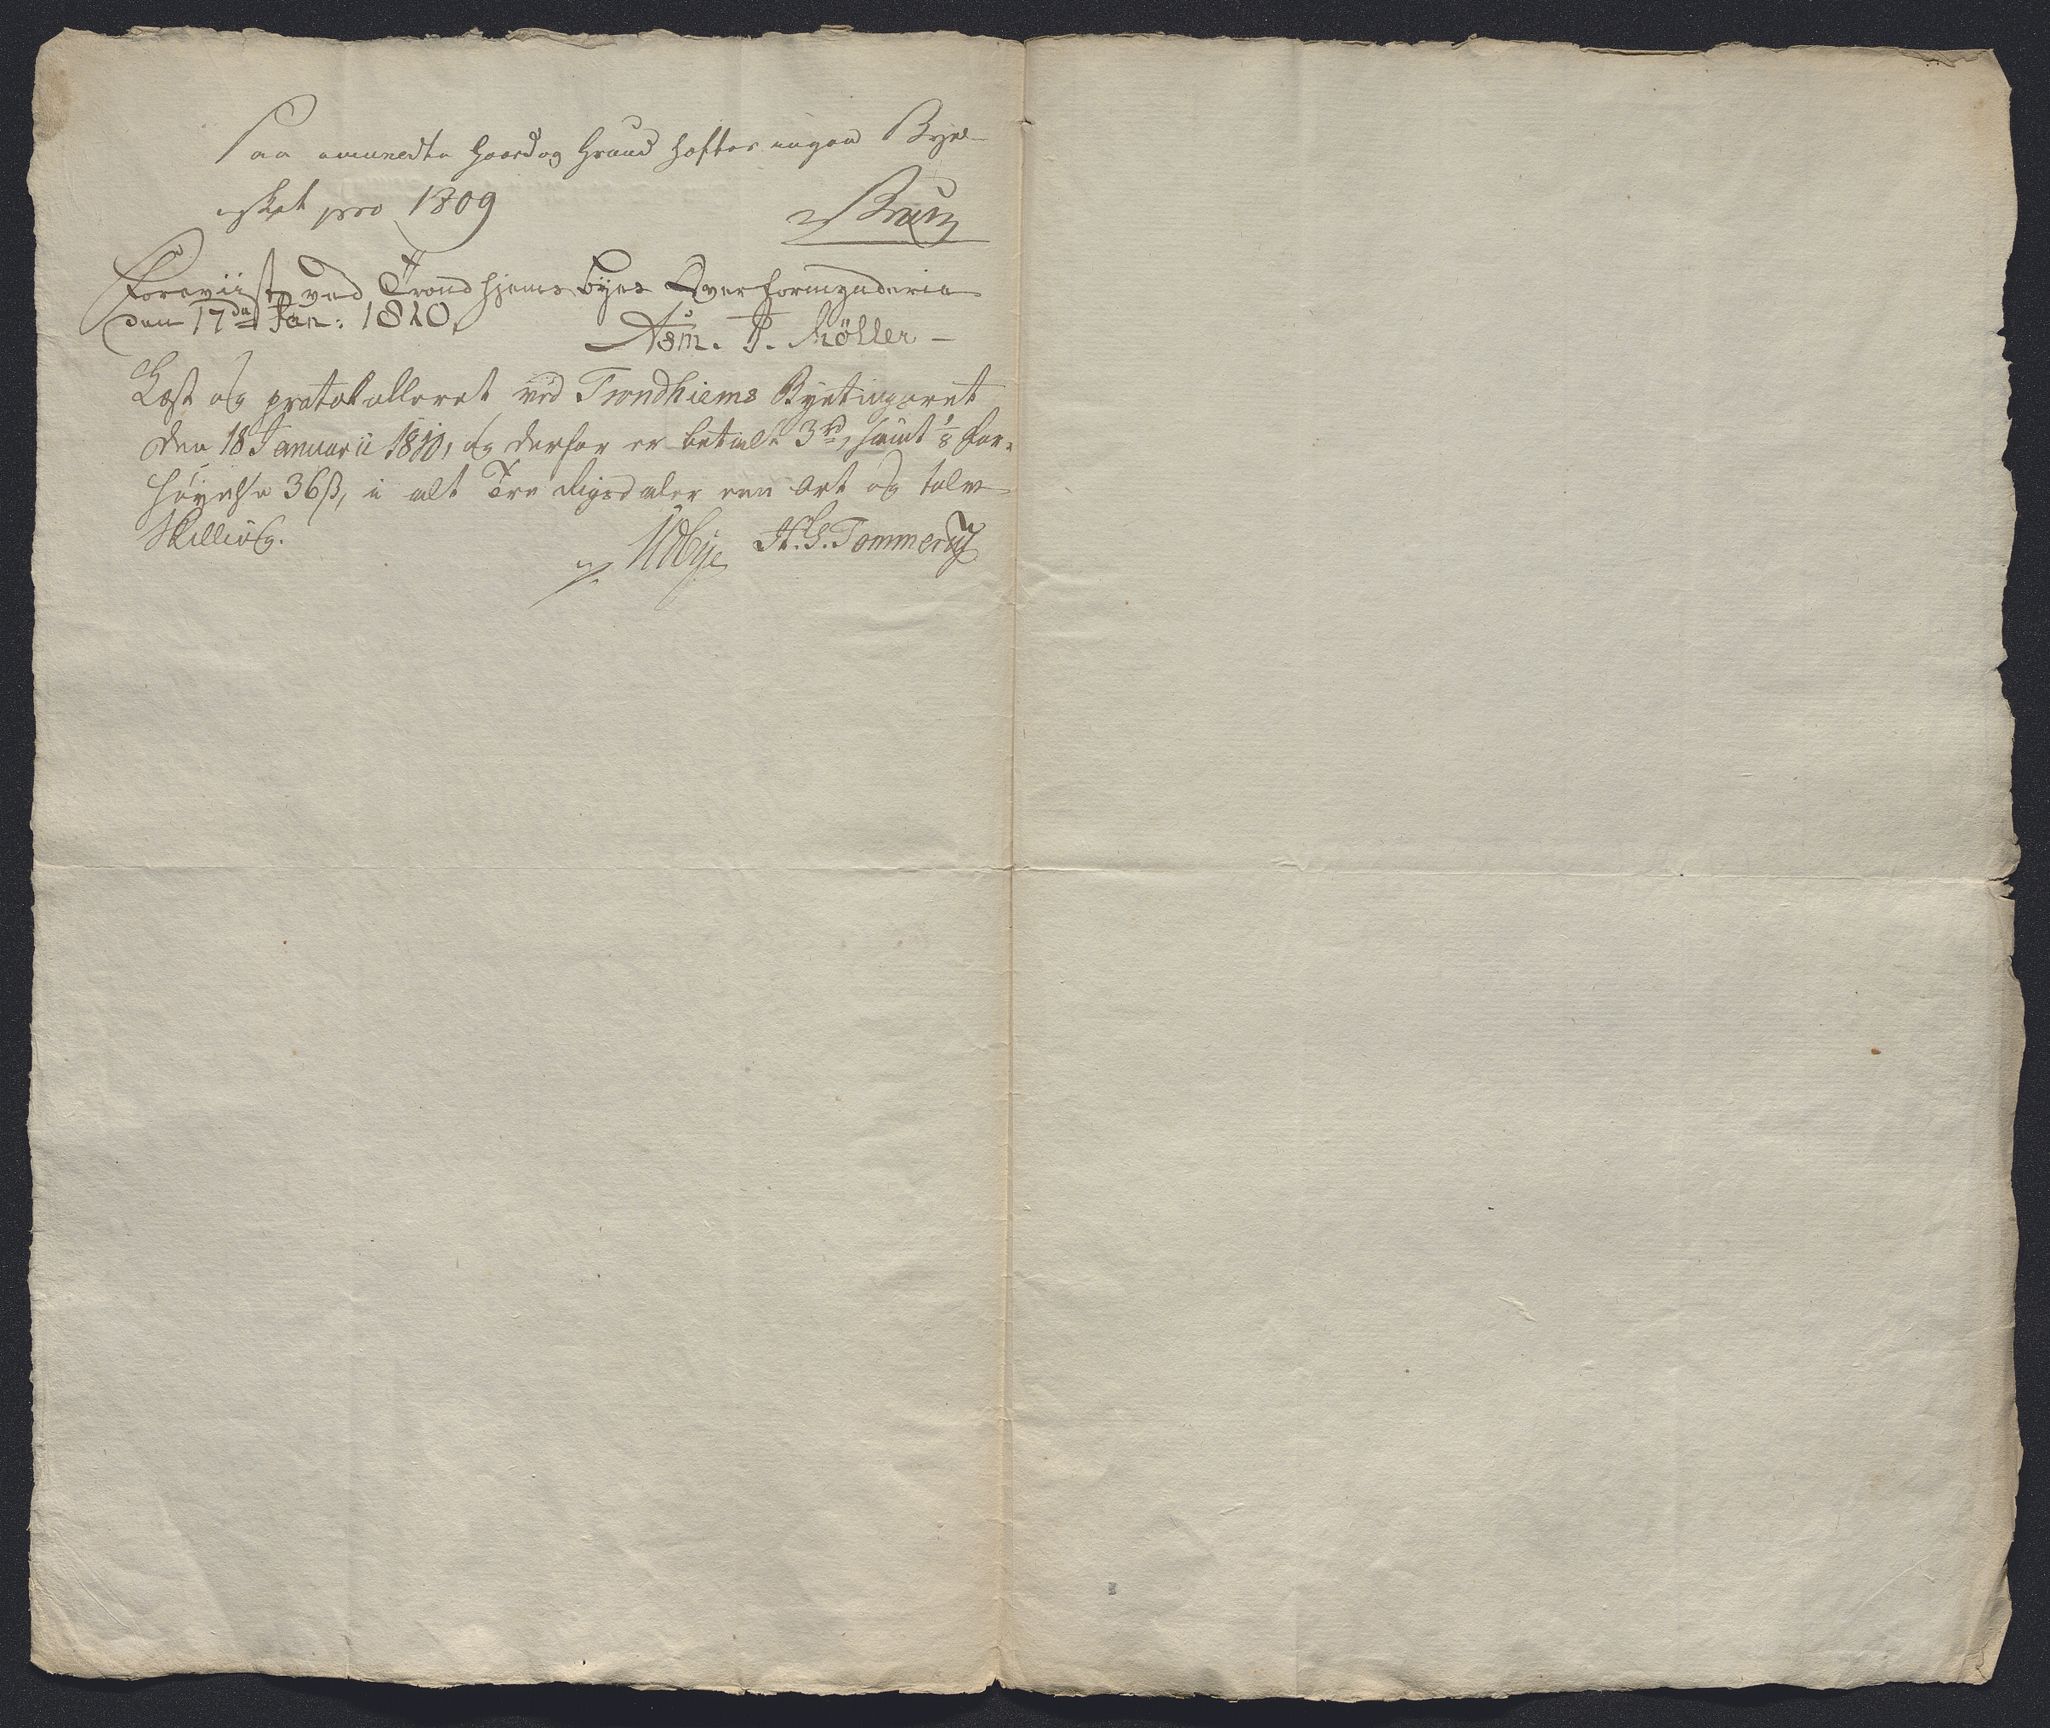 Paa ommeldte Gaard og Grund hæfter ingen Bye-
skat pro 1809
Bruun
Foreviist ved Trondhjems Byes Overformynderie
den 17de Jan: 1810.
Asm. T. Möller
Læst og protokolleret ved Trondhiems Byetingsret
den 18 Januarii 1810, og derfor er betalt 3 rd, samt 1/8 For-
høyelse 36 ß, i alt Tre Rigsdaler een Ort og tolv
Skilling.
Udbye H. G. Tommerup